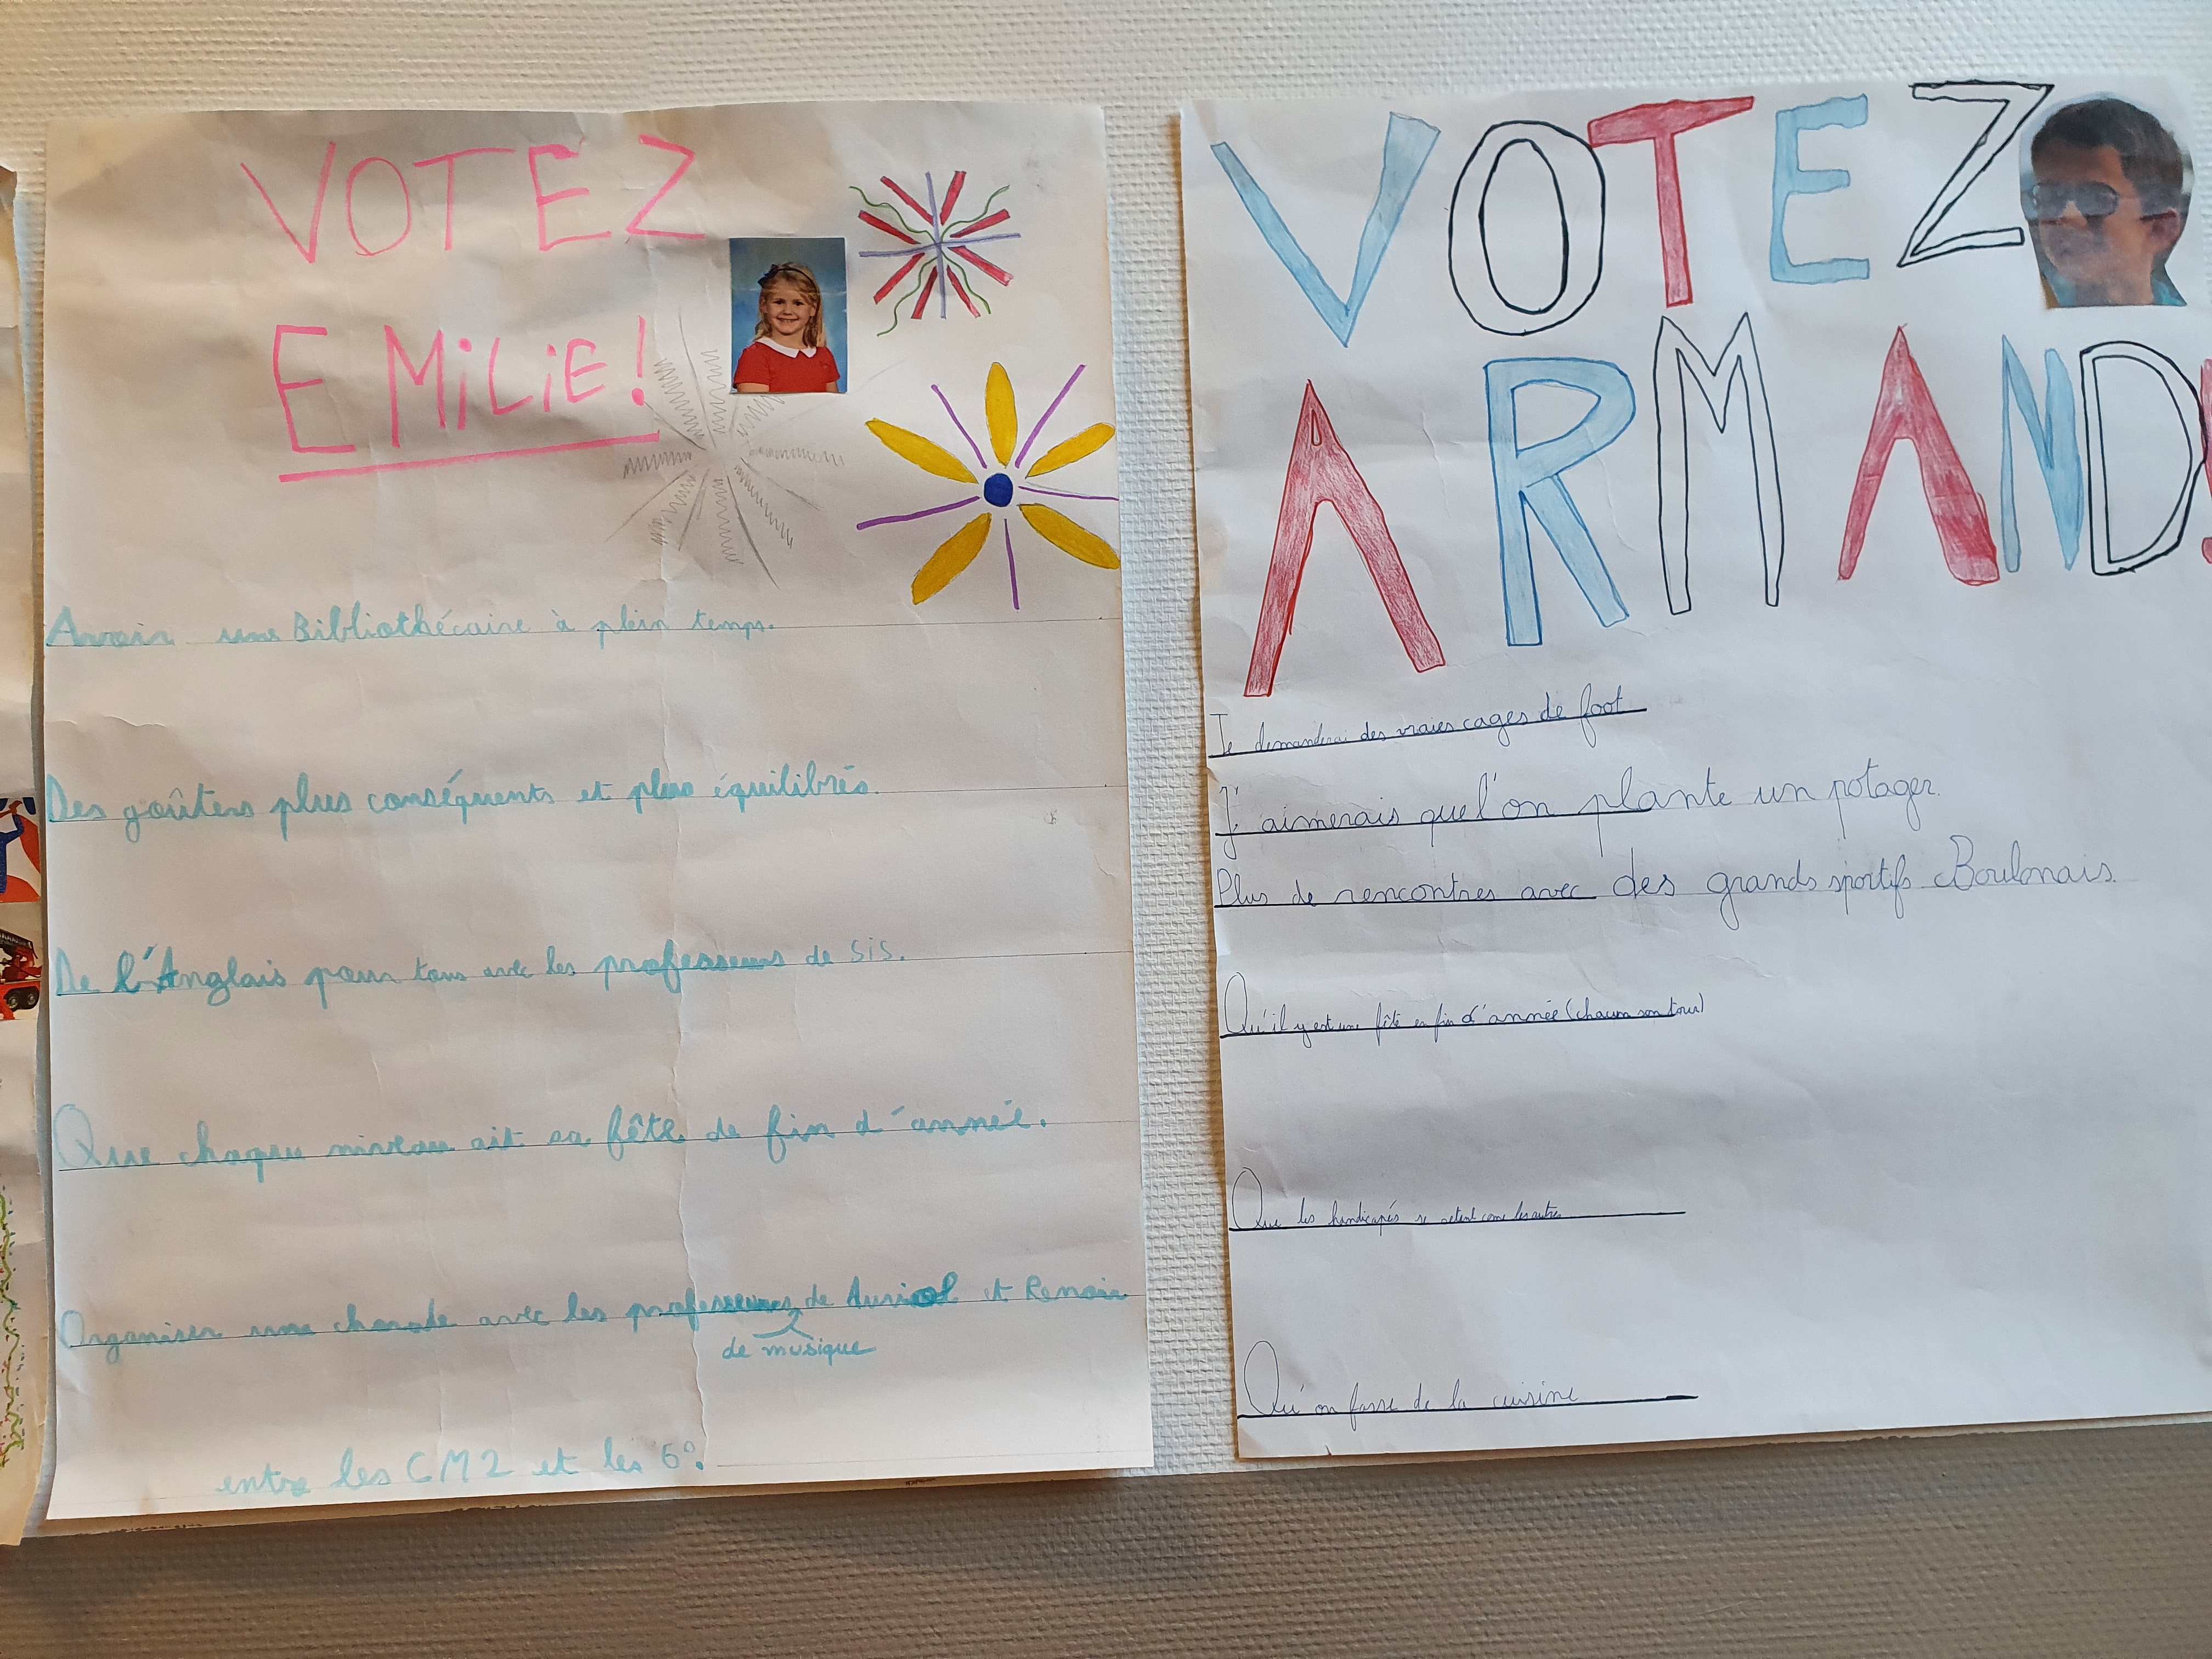 VOTEZ
EMiLiE!
Avoir une Bibliothécaire à plein temps.
Des goûters plus conséquents et plus équilibrés.
De l'Anglais pour tous avec les professeurs de SiS.
Que chaque niveau ait sa fête de fin d'année.
Organiser une chorale avec les professeurs de Auriol et Renoir
de musique
entre les CM2 et les 6°.
VOTEZ
ARMAND!
Je demanderai des vraies cages de foot
J'aimerais que l'on plante un potager.
Plus de rencontres avec des grands sportifs Boulonais.
Qu'il y est une fête en fin d'année (chacun son tour)
Que les handicapés se comme les autres
Qu'on fasse de la cuisine